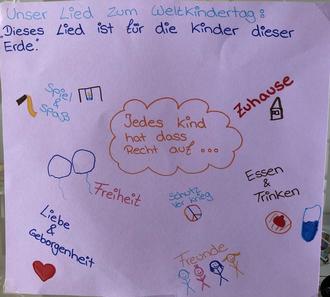 Unser Lied zum Weltkindertag:
"Dieses Lied ist für die Kinder dieser
Erde."
Spiel
&
Spaß
Zuhause
Jedes kind
hat dass
Recht auf ...
Essen
&
Trinken
Freiheit
Schutz
vor krieg
Liebe
&
Geborgenheit
Freunde